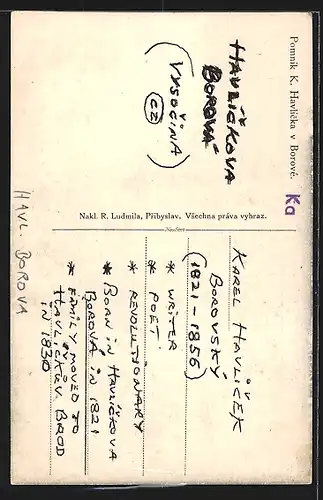 Pomník K. Havlíčka v Borové.
HAVLÍČKOVA
BOROVÁ
(VYSOČINA
CZ)
Ka
Nakl. R. Ludmila, Přibyslav. Všechna práva vyhraz.
HAVL. BOROVA
KAREL HAVLÍČEK
BOROVSKÝ
(1821-1856)
* WRITER
* POET
* REVOLUTIONARY
* BORN IN HAVLÍČKOVA
BOROVÁ IN 1821
* FAMILY MOVED TO
HAVLÍČKŮV BROD
IN 1830